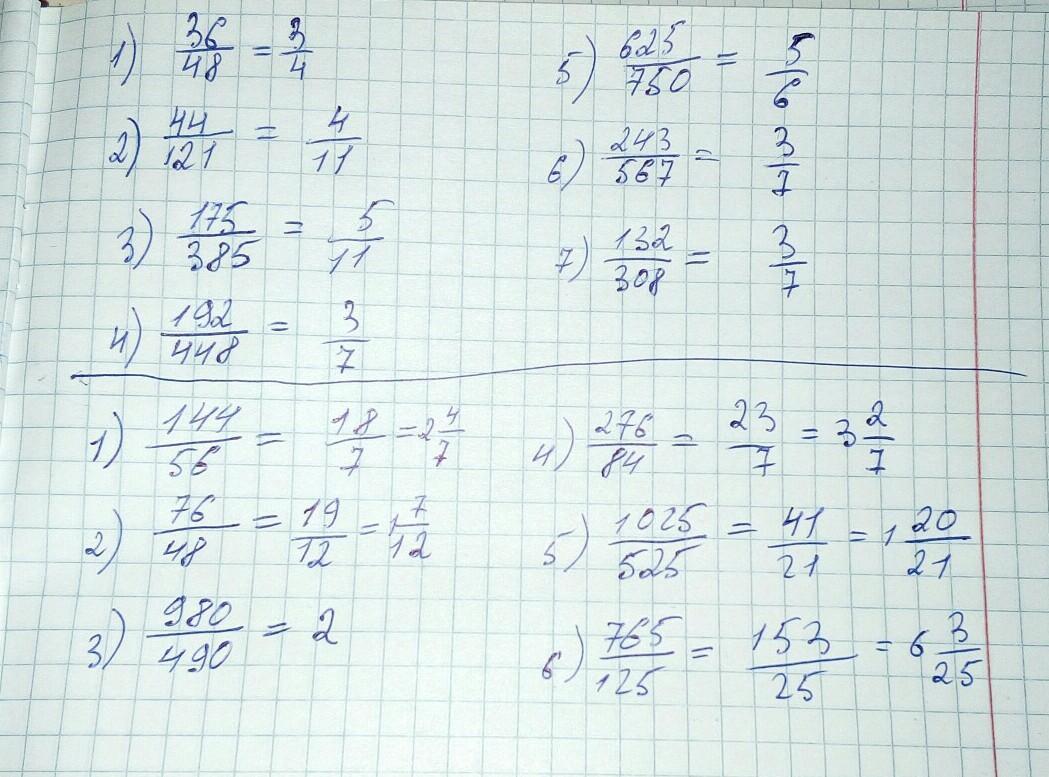 1) 36/48 = 3/4
2) 44/121 = 4/11
3) 175/385 = 5/11
4) 192/448 = 3/7
5) 625/750 = 5/6
6) 243/567 = 3/7
7) 132/308 = 3/7
1) 144/56 = 18/7 = 2 4/7
2) 76/48 = 19/12 = 1 7/12
3) 980/490 = 2
4) 276/84 = 23/7 = 3 2/7
5) 1025/525 = 41/21 = 1 20/21
6) 765/125 = 153/25 = 6 3/25